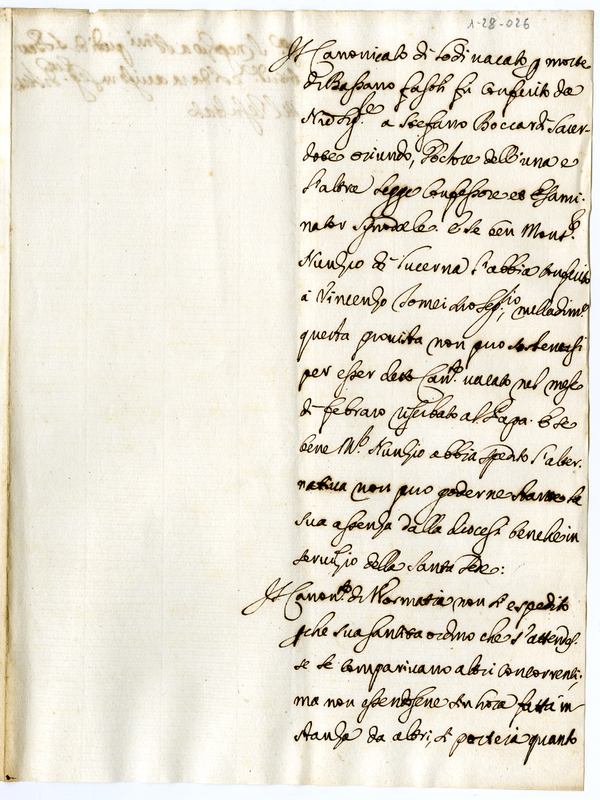 1-28-026
Il Canonicato di Lodi vacato p morte
di Bassano fu conferito da
N. Sig.re a Stefano Boccardi Sacer-
dote oriundo, Dottore dell'una e
l'altra legge Confessore et Esami-
nator Sinodale. E se ben Mons.r
Nunzio di Lucerna l'abbia conferito
à Vincenzo
questa provista non può sostenersi
per esser detto Can.to vacato nel mese
di febraro riserbato al Papa. E se
bene M.r Nunzio abbia spedito l'alter-
nativa non può goderne stante la
sua assenza dalla diocesi benche in
servitio della Santa Sede:
Il Canon.to di non si è spedito
pche sua Santità ordinò che s'attendes-
se se comparivano altri concorrenti,
ma non essendosene sin hora fatta in-
stanza da altri, si potria quanto